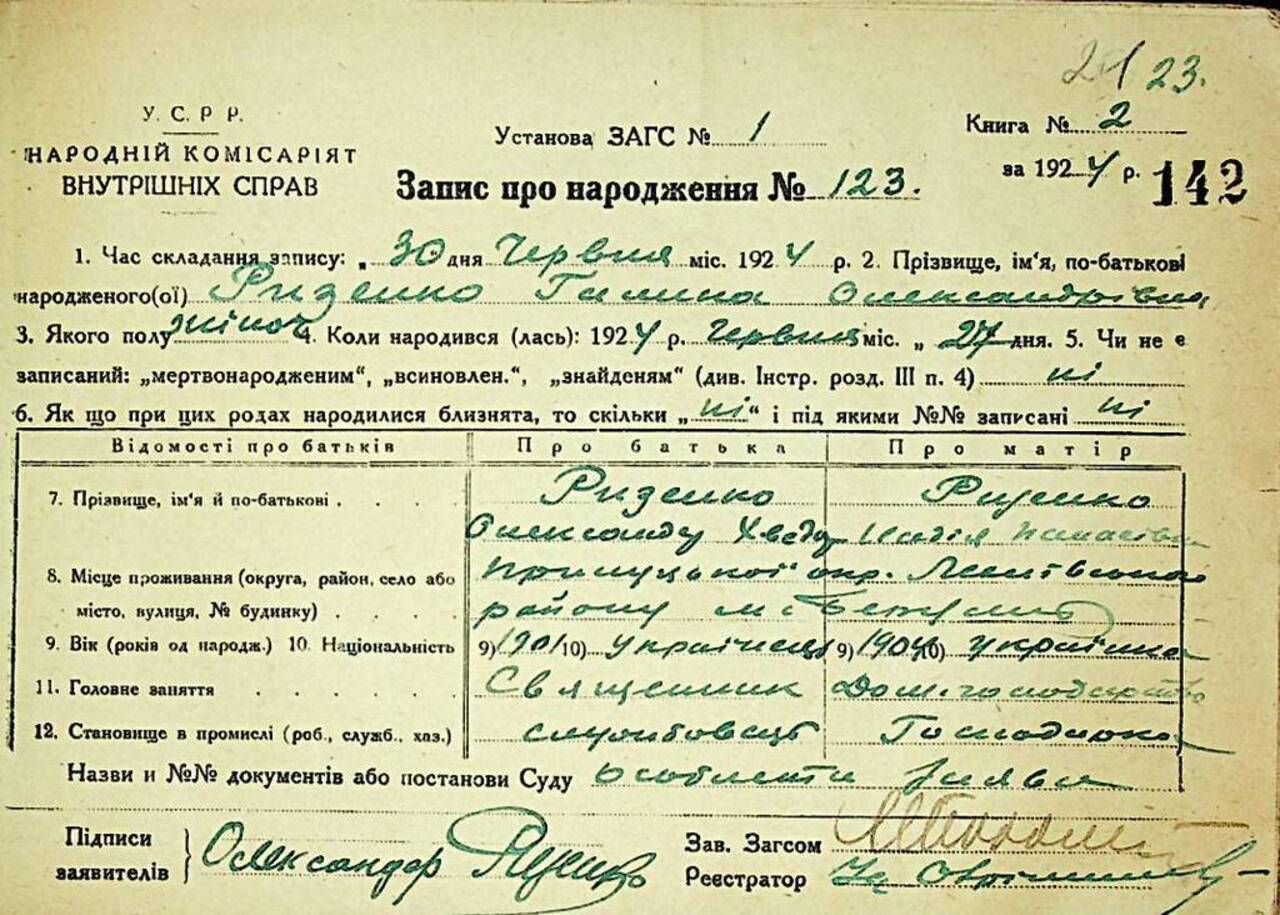 24 23.
У. С. Р Р.
НАРОДНІЙ КОМІСАРІЯТ
ВНУТРІШНІХ СПРАВ
Установа ЗАГС № 1
Книга № 2
за 1924 р. 142
Запис про народження № 123.
1. Час складання запису: „ 30 дня Червня міс. 1924 р. 2. Прізвище, ім'я, по-батькові
народженого(ої) Ризенко Галина Олександрівна
3. Якого полу жіноч 4. Коли народився (лась): 1924 р. Червня міс. „ 27 дня. 5. Чи не є
записаний: „мертвонародженим“, „всиновлен.“, „знайденям“ (див. Інстр. розд. III п. 4) ні
6. Як що при цих родах народилися близнята, то скільки „ ні “ і під якими №№ записані ні
Відомості про батьків Про батька Про матір
7. Прізвище, ім'я й по-батькові . . . . Ризенко Ризенко
Олександр Хведор Надія Панасівна
8. Місце проживання (округа, район, село або Прилуцької окр.
місто, вулиця, № будинку) . . . . району м.
9. Вік (років од народж.) 10. Національність 9) 1901 10) Українець 9) 1904 10) Українка
11. Головне заняття . . . . . Священник Дом. господарство
12. Становище в промислі (роб., служб., хаз.) службовець Господарка
Назви и №№ документів або постанови Суду особиста заява
Підписи
заявителів Олександр
Зав. Загсом
Реєстратор